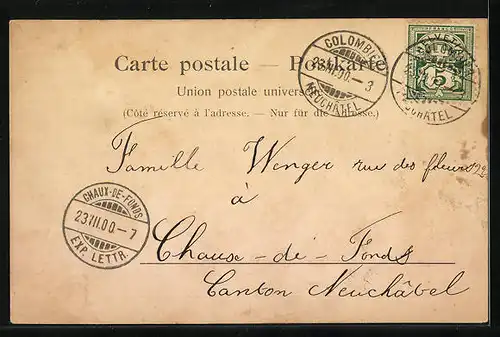 Carte postale — Postkarte
Union postale universelle
(Côté réservé à l'adresse. — Nur für die Adresse.)
COLOMBIER
23.VII.00.-3
NEUCHÂTEL
HELVETIA
5
COLOMBIER
CHÂTEL
Famille Wenger rue des fleurs 22
à
CHAUX-DE-FONDS
23.VII.00.-7
EXP. LETTR.
Chause-de-Fonds
Canton Neuchâtel